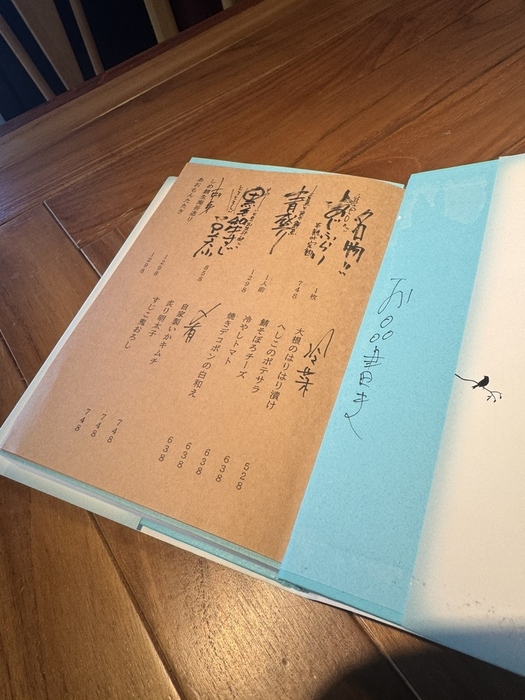 お品書き
名物!!
1枚
748
青盛り
1人前
1298
858
1298
あおもんたたき
1298
冷菜
大根のはりはり漬け
528
へしこのポテサラ
638
鯖そぼろチーズ
638
冷やしトマト
638
焼きデコポンの白和え
638
肴
自家製いかキムチ
748
炙り明太子
748
すじこ鬼おろし
748